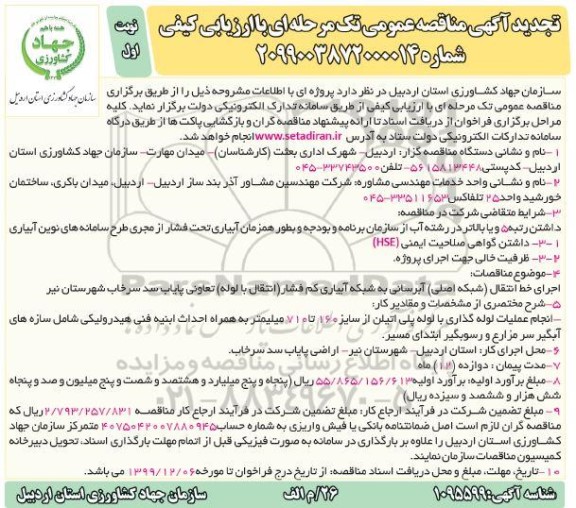 تجدید آگهی مناقصه عمومی تک مرحله ای با ارزیابی کیفی
شماره ۲۰۹۹۰۰۳۸۷۲۰۰۰۰۱۴
نوبت اول
همه با هم
جهاد
کشاورزی
سازمان جهاد کشاورزی استان اردبیل
سـازمان جهاد کشـاورزی استان اردبیل در نظر دارد پروژه ای با اطلاعات مشروحه ذیل را از طریق برگزاری
مناقصه عمومی تک مرحله ای با ارزیابی کیفی از طریق سامانه تدارک الکترونیکی دولت برگزار نماید. کلیه
مراحل برگزاری فراخوان از دریافت اسناد تا ارائه پیشنهاد مناقصه گران و بازگشایی پاکت ها از طریق درگاه
سامانه تدارکات الکترونیکی دولت ستاد به آدرس www.setadiran.ir انجام خواهد شد.
۱-نام و نشانی دستگاه مناقصه گزار: اردبیل- شهرک اداری بعثت (کارشناسان)- میدان مهارت- سازمان جهاد کشاورزی استان
اردبیل- کدپستی ۵۶۱۵۸۱۳۴۴۸- تلفن ۳۳۷۴۳۵۰۰-۰۴۵
۲-نام و نشـانی واحد خدمات مهندسی مشاوره: شرکت مهندسین مشـاور آذر بند ساز اردبیل- اردبیل، میدان باکری، ساختمان
خورشید واحد ۲۵ تلفاکس ۳۳۵۱۱۶۵۳-۰۴۵
۳-شرایط متقاضی شرکت در مناقصه:
داشتن رتبه ۵ و یا بالاتر در رشته آب از سازمان برنامه و بودجه و بطور همزمان آبیاری تحت فشار از مجری طرح سامانه های نوین آبیاری
۳-۱- داشتن گواهی صلاحیت ایمنی (HSE)
۳-۲- ظرفیت خالی جهت اجرای پروژه.
۴-موضوع مناقصات:
اجرای خط انتقال (شبکه اصلی) آبرسانی به شبکه آبیاری کم فشار (انتقال با لوله) تعاونی پایاب سد سرخاب شهرستان نیر
۵-شرح مختصری از مشخصات و مقادیر کار:
-انجام عملیات لوله گذاری با لوله پلی اتیلن از سایز ۱۶۰ تا ۷۱۰ میلیمتر به همراه احداث ابنیه فنی هیدرولیکی شامل سازه های
آبگیر سر مزارع و رسوبگیر ابتدای مسیر.
۶-محل اجرای کار: استان اردبیل- شهرستان نیر- اراضی پایاب سد سرخاب.
۷-مدت پیمان: دوازده (۱۲) ماه
۸-مبلغ برآورد اولیه: برآورد اولیه ۵۵/۸۶۵/۱۵۶/۶۱۳ ریال (پنجاه و پنج میلیارد و هشتصد و شصت و پنج میلیون و صد و پنجاه
شش هزار و ششصد و سیزده ریال)
۹- مبلغ تضمین شـرکت در فرآیند ارجاع کار: مبلغ تضمین شـرکت در فرآیند ارجاع کار مناقصـه ۲/۷۹۳/۲۵۷/۸۳۱ ریال که
مناقصه گران لازم است اصل ضمانتنامه بانکی یا فیش واریزی به شماره حساب ۴۰۷۵۰۴۲۰۰۷۸۸۰۹۴۵ متمرکز سازمان جهاد
کشـاورزی اسـتان اردبیل را علاوه بر بارگذاری در سامانه به صورت فیزیکی قبل از اتمام مهلت بارگذاری اسناد، تحویل دبیرخانه
کمیسیون مناقصات سازمان نمایند.
۱۰-تاریخ، مهلت، مبلغ و محل دریافت اسناد مناقصه: از تاریخ درج فراخوان تا مورخه ۱۳۹۹/۱۲/۰۶ می باشد.
شناسه آگهی: ۱۰۹۵۵۹۹
۲۶/م الف
سازمان جهاد کشاورزی استان اردبیل